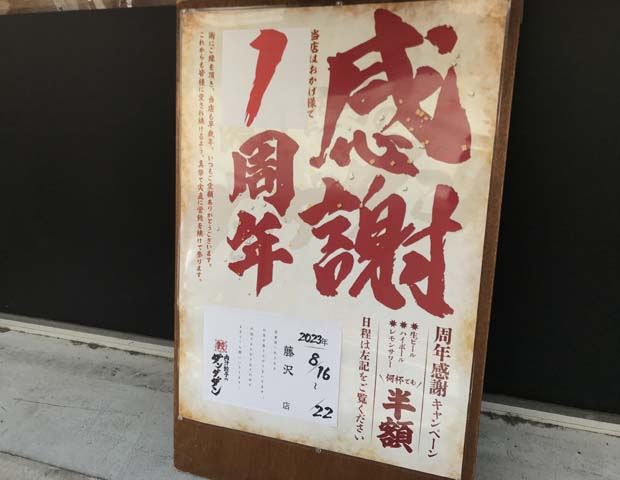 感謝
当店はおかげ様で
1
周年
街にご縁を頂き、当店も早数年、いつもご愛顧ありがとうございます。
これからも皆様に愛され続けるよう、真摯で実直に営税を続けて参ります。
周年感謝キャンペーン
生ビール
ハイボール
レモンサワー
何杯でも
半額
日程は左記をご覧ください
2023年
8/16
~
/22
藤沢 店
肉汁餃子の
ダンダダン